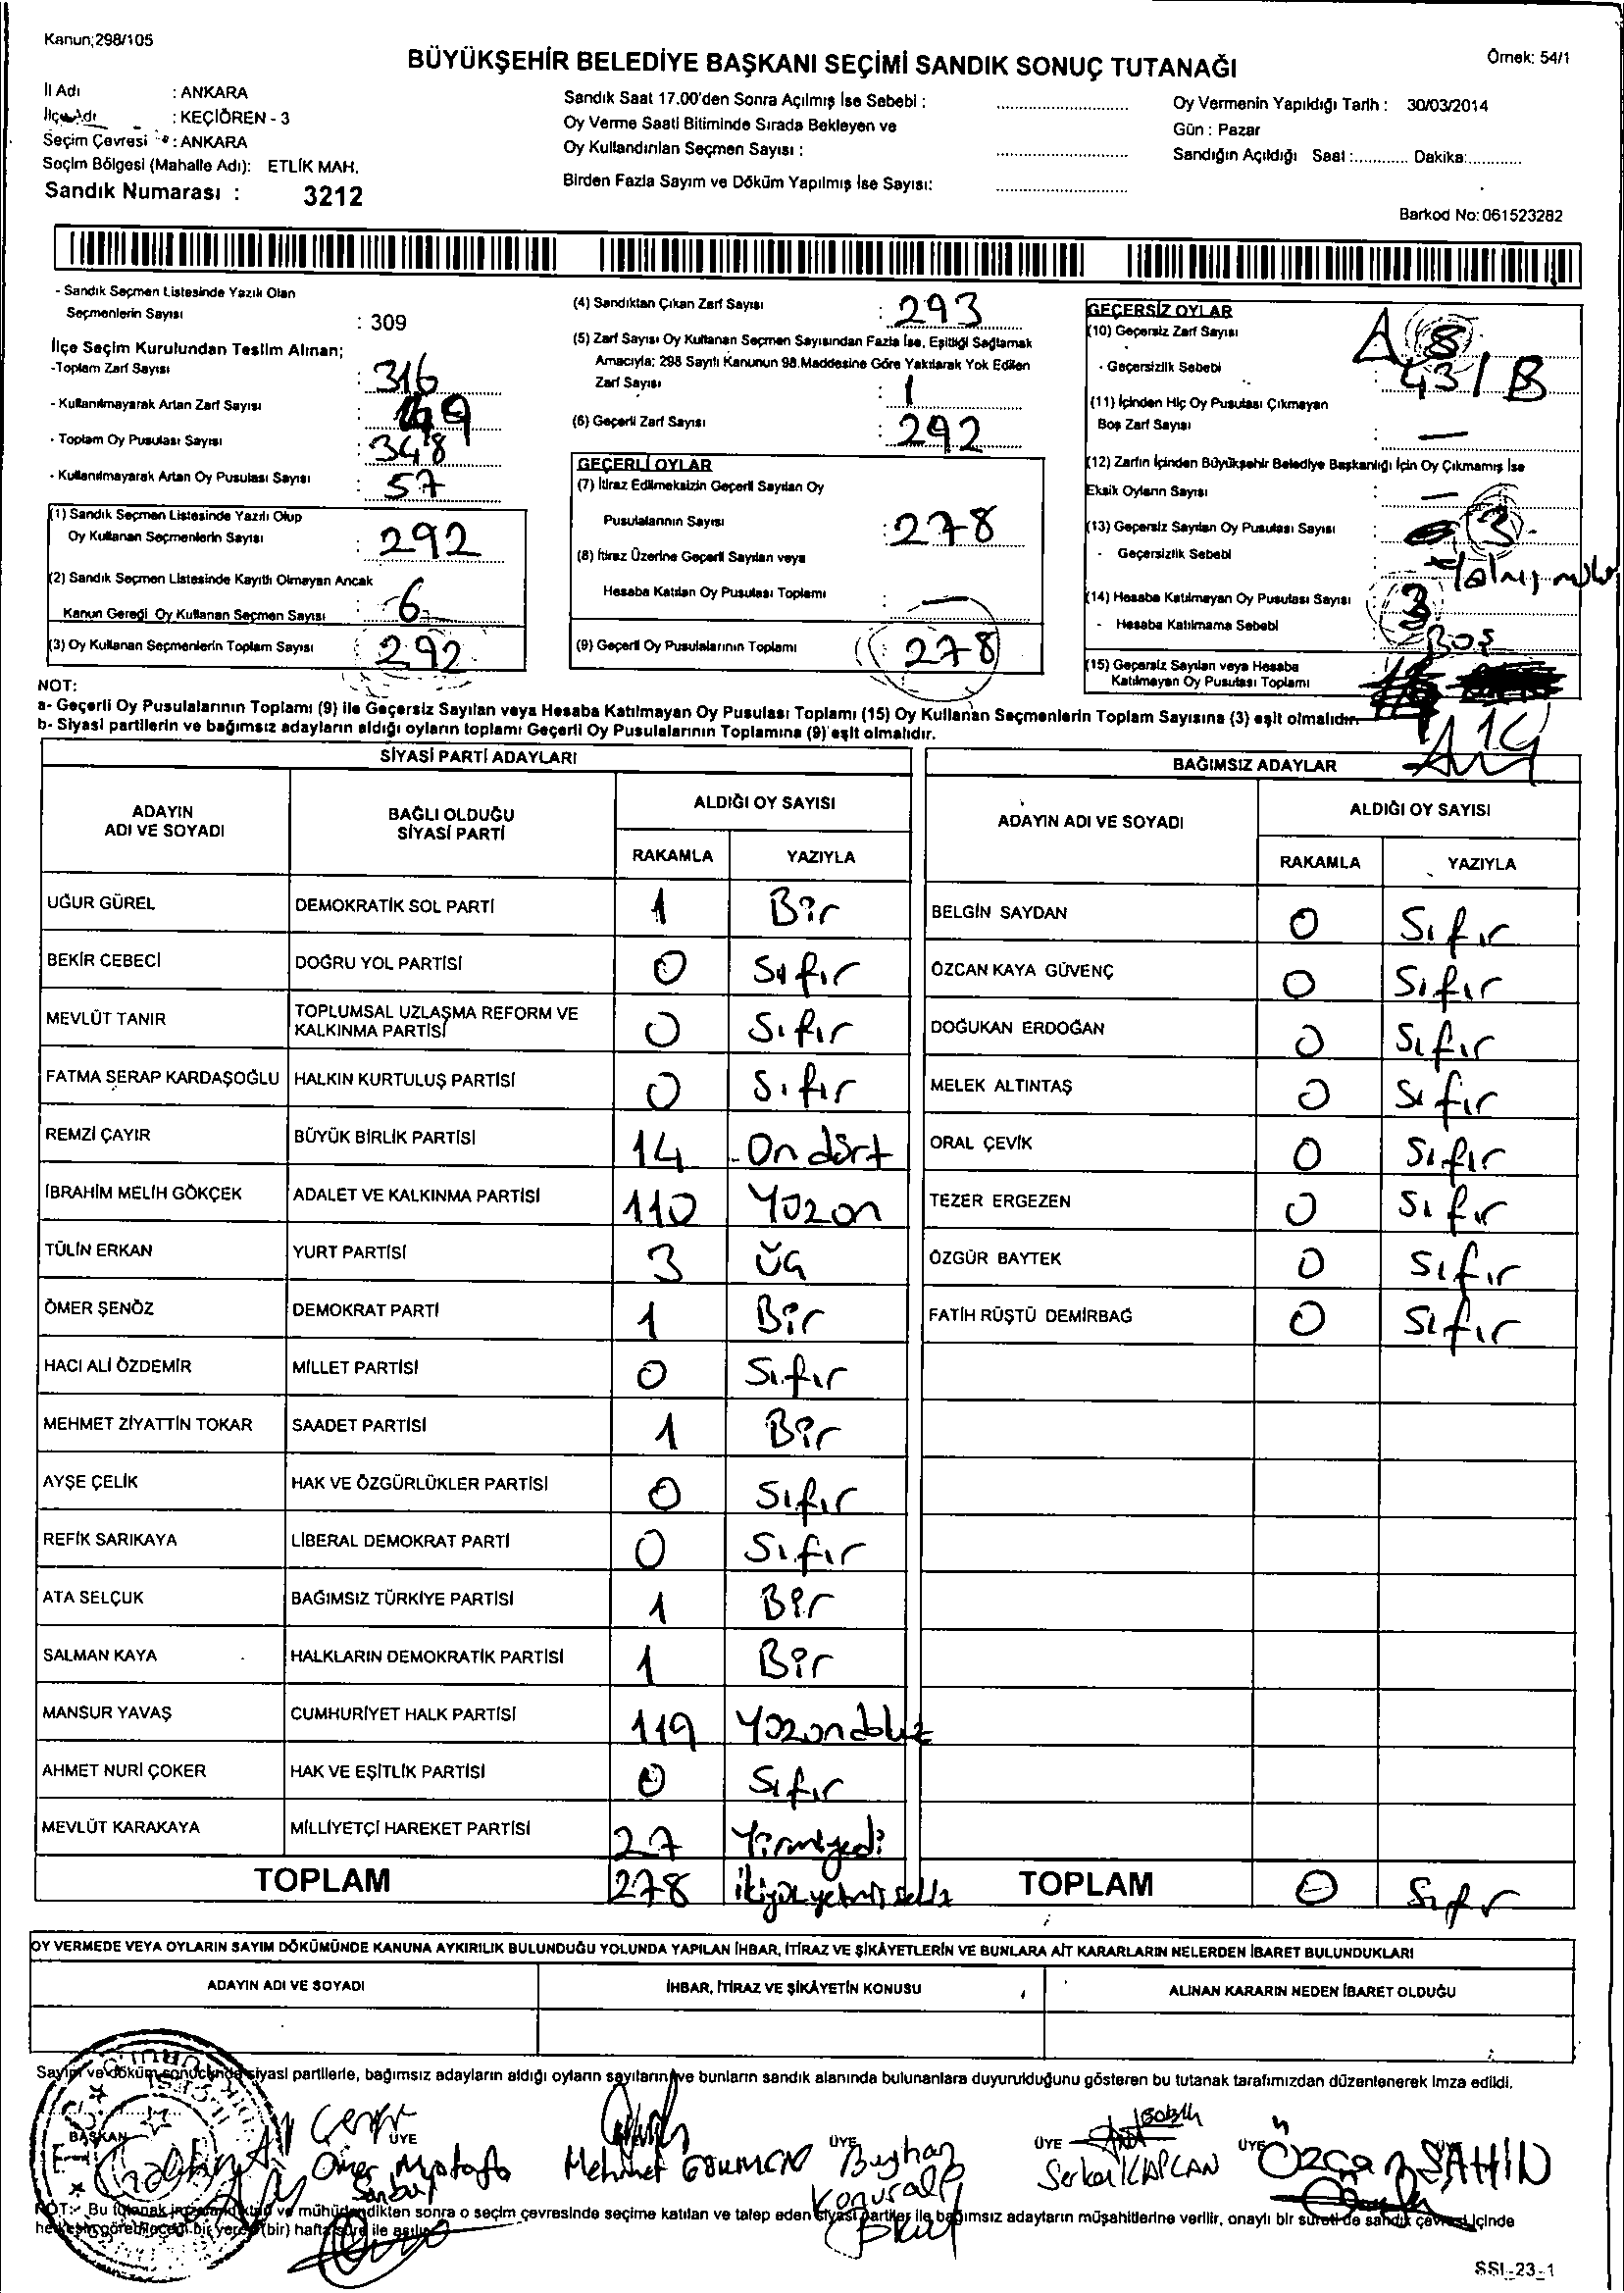 Kanun;298/105
BÜYÜKŞEHİR BELEDİYE BAŞKANI SEÇİMİ SANDIK SONUÇ TUTANAĞI
Örnek: 54/1
İl Adı : ANKARA
İlçe Adı : KEÇİÖREN - 3
Seçim Çevresi : ANKARA
Seçim Bölgesi (Mahalle Adı): ETLİK MAH.
Sandık Numarası : 3212
Sandık Saat 17.00'den Sonra Açılmış İse Sebebi :
Oy Verme Saati Bitiminde Sırada Bekleyen ve
Oy Kullandırılan Seçmen Sayısı :
Birden Fazla Sayım ve Döküm Yapılmış İse Sayısı:
Oy Vermenin Yapıldığı Tarih : 30/03/2014
Gün : Pazar
Sandığın Açıldığı Saat :............ Dakika:............
Barkod No: 061523282
- Sandık Seçmen Listesinde Yazılı Olan
Seçmenlerin Sayısı : 309
İlçe Seçim Kurulundan Teslim Alınan;
-Toplam Zarf Sayısı : 316
- Kullanılmayarak Artan Zarf Sayısı :
- Toplam Oy Pusulası Sayısı : 348
- Kullanılmayarak Artan Oy Pusulası Sayısı : 57
(1) Sandık Seçmen Listesinde Yazılı Olup
Oy Kullanan Seçmenlerin Sayısı : 292
(2) Sandık Seçmen Listesinde Kayıtlı Olmayan Ancak
Kanun Gereği Oy Kullanan Seçmen Sayısı : 6
(3) Oy Kullanan Seçmenlerin Toplam Sayısı : 292
(4) Sandıktan Çıkan Zarf Sayısı : 293
(5) Zarf Sayısı Oy Kullanan Seçmen Sayısından Fazla İse, Eşitliği Sağlamak
Amacıyla; 298 Sayılı Kanunun 98.Maddesine Göre Yakılarak Yok Edilen
Zarf Sayısı : 1
(6) Geçerli Zarf Sayısı : 292
GEÇERLİ OYLAR
(7) İtiraz Edilmeksizin Geçerli Sayılan Oy
Pusulalarının Sayısı : 278
(8) İtiraz Üzerine Geçerli Sayılan veya
Hesaba Katılan Oy Pusulası Toplamı : —
(9) Geçerli Oy Pusulalarının Toplamı : 278
GEÇERSİZ OYLAR
(10) Geçersiz Zarf Sayısı : A 8
- Geçersizlik Sebebi : 43/B
(11) İçinden Hiç Oy Pusulası Çıkmayan
Boş Zarf Sayısı : —
(12) Zarfın İçinden Büyükşehir Belediye Başkanlığı İçin Oy Çıkmamış İse
Eksik Oyların Sayısı : —
(13) Geçersiz Sayılan Oy Pusulası Sayısı : 3
- Geçersizlik Sebebi
(14) Hesaba Katılmayan Oy Pusulası Sayısı : 3
- Hesaba Katılmama Sebebi : Boş
(15) Geçersiz Sayılan veya Hesaba
Katılmayan Oy Pusulası Toplamı
14
NOT:
a- Geçerli Oy Pusulalarının Toplamı (9) ile Geçersiz Sayılan veya Hesaba Katılmayan Oy Pusulası Toplamı (15) Oy Kullanan Seçmenlerin Toplam Sayısına (3) eşit olmalıdır.
b- Siyasi partilerin ve bağımsız adayların aldığı oyların toplamı Geçerli Oy Pusulalarının Toplamına (9) eşit olmalıdır.
SİYASİ PARTİ ADAYLARI
ADAYIN ADI VE SOYADI BAĞLI OLDUĞU SİYASİ PARTİ ALDIĞI OY SAYISI
RAKAMLA YAZIYLA
UĞUR GÜREL DEMOKRATİK SOL PARTİ 1 Bir
BEKİR CEBECİ DOĞRU YOL PARTİSİ 0 Sıfır
MEVLÜT TANIR TOPLUMSAL UZLAŞMA REFORM VE KALKINMA PARTİSİ 0 Sıfır
FATMA SERAP KARDAŞOĞLU HALKIN KURTULUŞ PARTİSİ 0 Sıfır
REMZİ ÇAYIR BÜYÜK BİRLİK PARTİSİ 14 On dört
İBRAHİM MELİH GÖKÇEK ADALET VE KALKINMA PARTİSİ 110 Yüzon
TÜLİN ERKAN YURT PARTİSİ 3 Üç
ÖMER ŞENÖZ DEMOKRAT PARTİ 1 Bir
HACI ALİ ÖZDEMİR MİLLET PARTİSİ 0 Sıfır
MEHMET ZİYATTİN TOKAR SAADET PARTİSİ 1 Bir
AYŞE ÇELİK HAK VE ÖZGÜRLÜKLER PARTİSİ 0 Sıfır
REFİK SARIKAYA LİBERAL DEMOKRAT PARTİ 0 Sıfır
ATA SELÇUK BAĞIMSIZ TÜRKİYE PARTİSİ 1 Bir
SALMAN KAYA HALKLARIN DEMOKRATİK PARTİSİ 1 Bir
MANSUR YAVAŞ CUMHURİYET HALK PARTİSİ 119 Yüzondokuz
AHMET NURİ ÇOKER HAK VE EŞİTLİK PARTİSİ 0 Sıfır
MEVLÜT KARAKAYA MİLLİYETÇİ HAREKET PARTİSİ 27 Yirmiyedi
TOPLAM 278 ikiyüzyetmişsekiz
BAĞIMSIZ ADAYLAR
ADAYIN ADI VE SOYADI ALDIĞI OY SAYISI
RAKAMLA YAZIYLA
BELGİN SAYDAN 0 Sıfır
ÖZCAN KAYA GÜVENÇ 0 Sıfır
DOĞUKAN ERDOĞAN 0 Sıfır
MELEK ALTINTAŞ 0 Sıfır
ORAL ÇEVİK 0 Sıfır
TEZER ERGEZEN 0 Sıfır
ÖZGÜR BAYTEK 0 Sıfır
FATİH RÜŞTÜ DEMİRBAĞ 0 Sıfır
TOPLAM 0 Sıfır
OY VERMEDE VEYA OYLARIN SAYIM DÖKÜMÜNDE KANUNA AYKIRILIK BULUNDUĞU YOLUNDA YAPILAN İHBAR, İTİRAZ VE ŞİKÂYETLERİN VE BUNLARA AİT KARARLARIN NELERDEN İBARET BULUNDUKLARI
ADAYIN ADI VE SOYADI İHBAR, İTİRAZ VE ŞİKÂYETİN KONUSU ALINAN KARARIN NEDEN İBARET OLDUĞU
Sayım ve döküm sonucunda siyasi partilerle, bağımsız adayların aldığı oyların sayılarını ve bunların sandık alanında bulunanlara duyurulduğunu gösteren bu tutanak tarafımızdan düzenlenerek imza edildi.
BAŞKAN ÜYE ÜYE ÜYE ÜYE
Ömer Mustafa Mehmet Beyhan Konuralp Serkan KAPLAN Özcan ŞAHİN
NOT: Bu tutanak ve mühürlendikten sonra o seçim çevresinde seçime katılan ve talep eden siyasi partiler ile bağımsız adayların müşahitlerine verilir, onaylı bir sureti de sandık çevresi içinde
herkesin görebileceği bir yere (bir) hafta süre ile asılır.
SSL-23_1